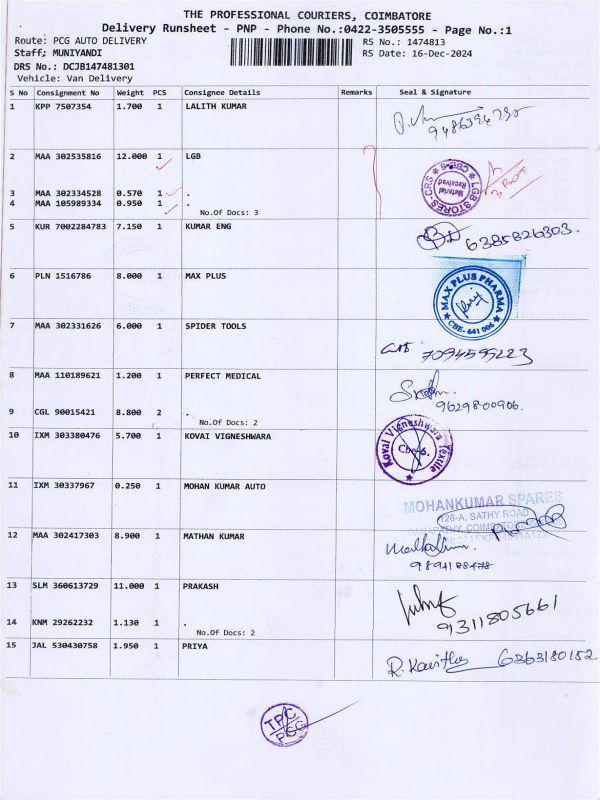 THE PROFESSIONAL COURIERS, COIMBATORE
Delivery Runsheet - PNP - Phone No.:0422-3505555 - Page No.:1
Route: PCG AUTO DELIVERY RS No.: 1474813
Staff; MUNIYANDI RS Date: 16-Dec-2024
DRS No.: DCJB147481301
Vehicle: Van Delivery
S No Consignment No Weight PCS Consignee Details Remarks Seal & Signature
1 KPP 7507354 1.700 1 LALITH KUMAR
9486394790
2 MAA 302535816 12.000 1 LGB
LGB STORES-CRS CBE-6
Material Received
3 BOX
3 MAA 302334528 0.570 1 .
4 MAA 105989334 0.950 1 .
No.Of Docs: 3
5 KUR 7002284783 7.150 1 KUMAR ENG
6385826303.
6 PLN 1516786 8.000 1 MAX PLUS
MAX PLUS PHARMA
CBE-641 006
7 MAA 302331626 6.000 1 SPIDER TOOLS
7094599223
8 MAA 110189621 1.200 1 PERFECT MEDICAL
9629800906.
9 CGL 90015421 8.800 2 .
No.Of Docs: 2
10 IXM 303380476 5.700 1 KOVAI VIGNESHWARA
Kovai Vigneshwara Textile
Cbe-6.
11 IXM 30337967 0.250 1 MOHAN KUMAR AUTO
MOHANKUMAR SPARES
128-A, SATHY ROAD
12 MAA 302417303 8.900 1 MATHAN KUMAR
9894188478
13 SLM 360613729 11.000 1 PRAKASH
9311805661
14 KNM 29262232 1.130 1 .
No.Of Docs: 2
15 JAL 530430758 1.950 1 PRIYA
R. Kavitha 6363180152
TPC
PCG